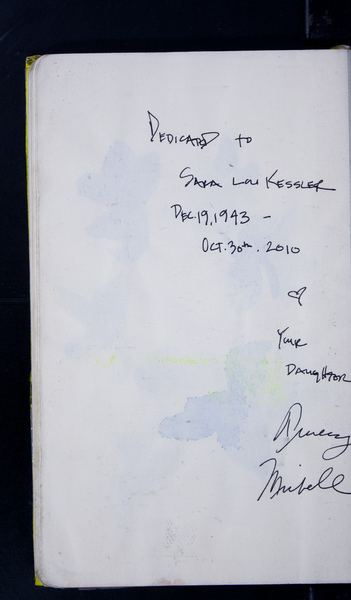 DEDICATED to
SARA LOU KESSLER
DEC. 19, 1943 -
OCT. 30th. 2010
♡
YOUR
DAUGHTER